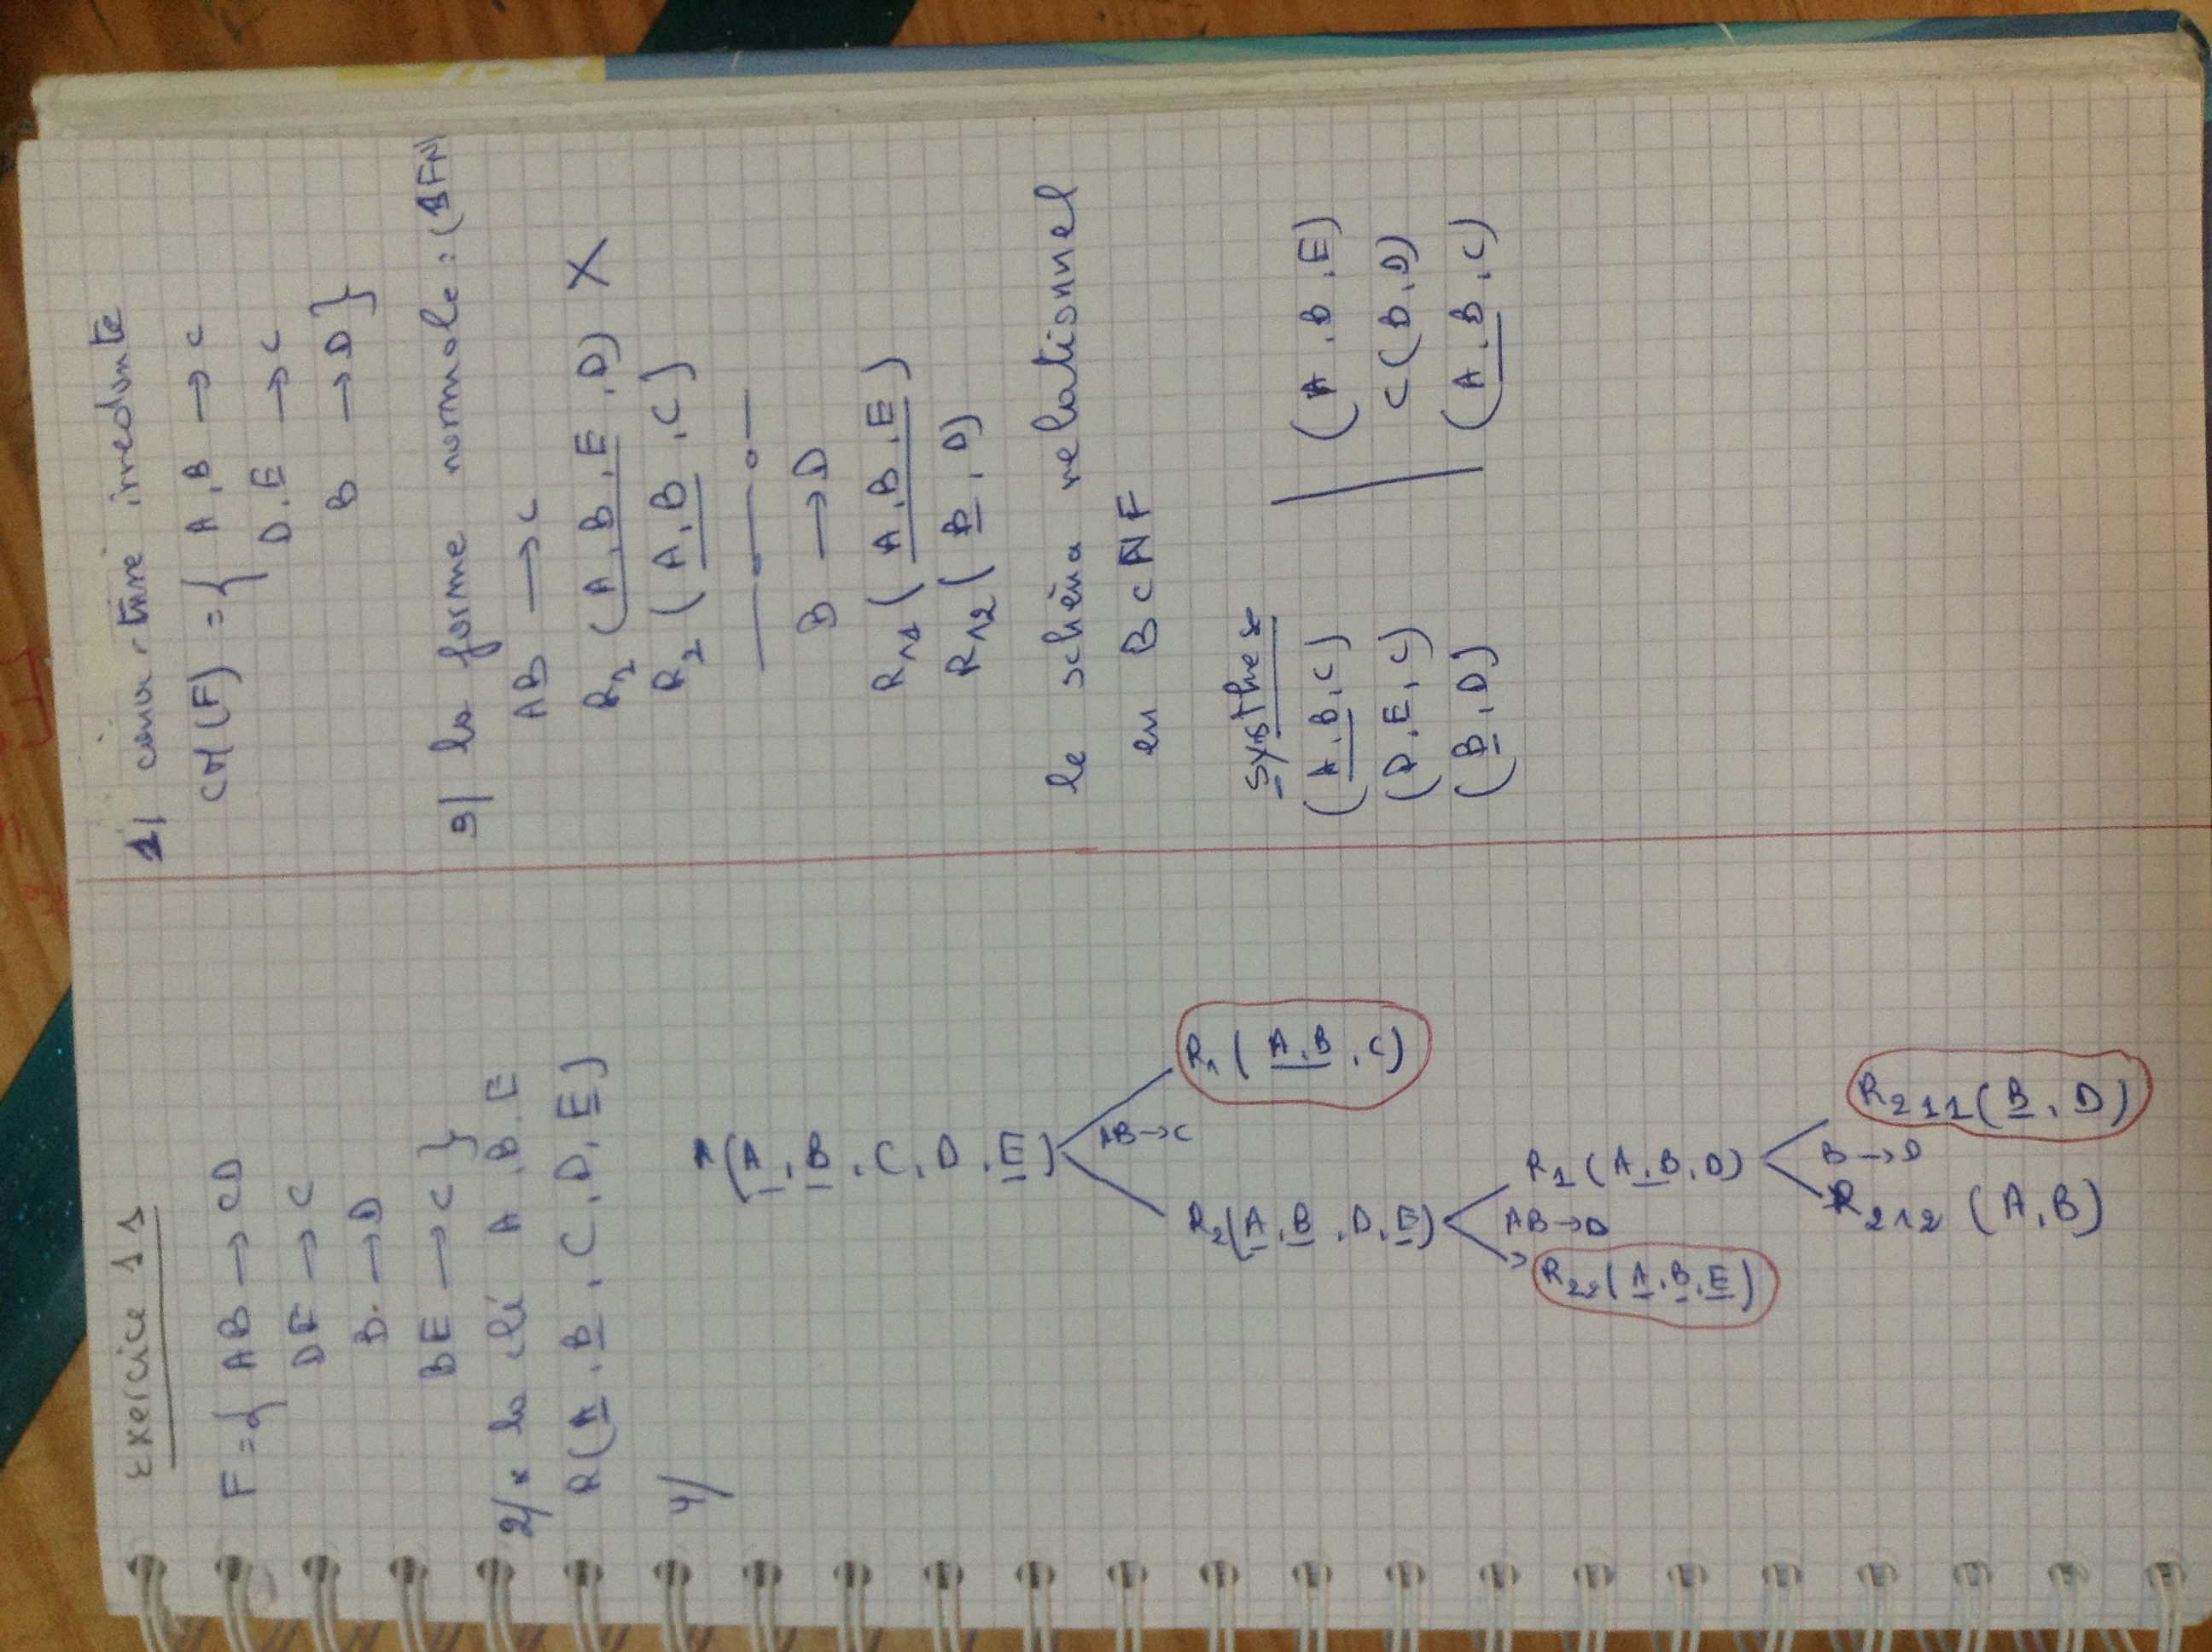 Exercice 11
F = { AB → CD
DE → C
B → D
BE → C }
2/ * la clé A, B, E
R(A, B, C, D, E)
4/
R(A, B, C, D, E)
AB → C
R1(A, B, C)
R2(A, B, D, E)
AB → D
R1(A, B, D)
R22(A, B, E)
B → D
R211(B, D)
R212(A, B)
1/ irredonte
CM(F) = { A, B → C
D, E → C
B → D }
3/ la forme normale : (1FN)
AB → C
R1(A, B, E, D) X
R2(A, B, C)
B → D
R11(A, B, E)
R12(B, D)
le schéma relationnel
en BCNF
systhese
(A, B, C) | (A, B, E)
(D, E, C) | C(B, D)
(B, D) | (A, B, C)